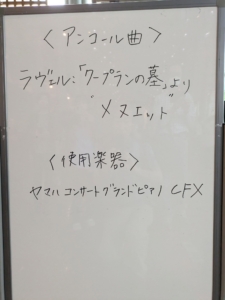 〈アンコール曲〉
ラヴェル:「クープランの墓」より
"メヌエット"
〈使用楽器〉
ヤマハ コンサートグランドピアノ CFX